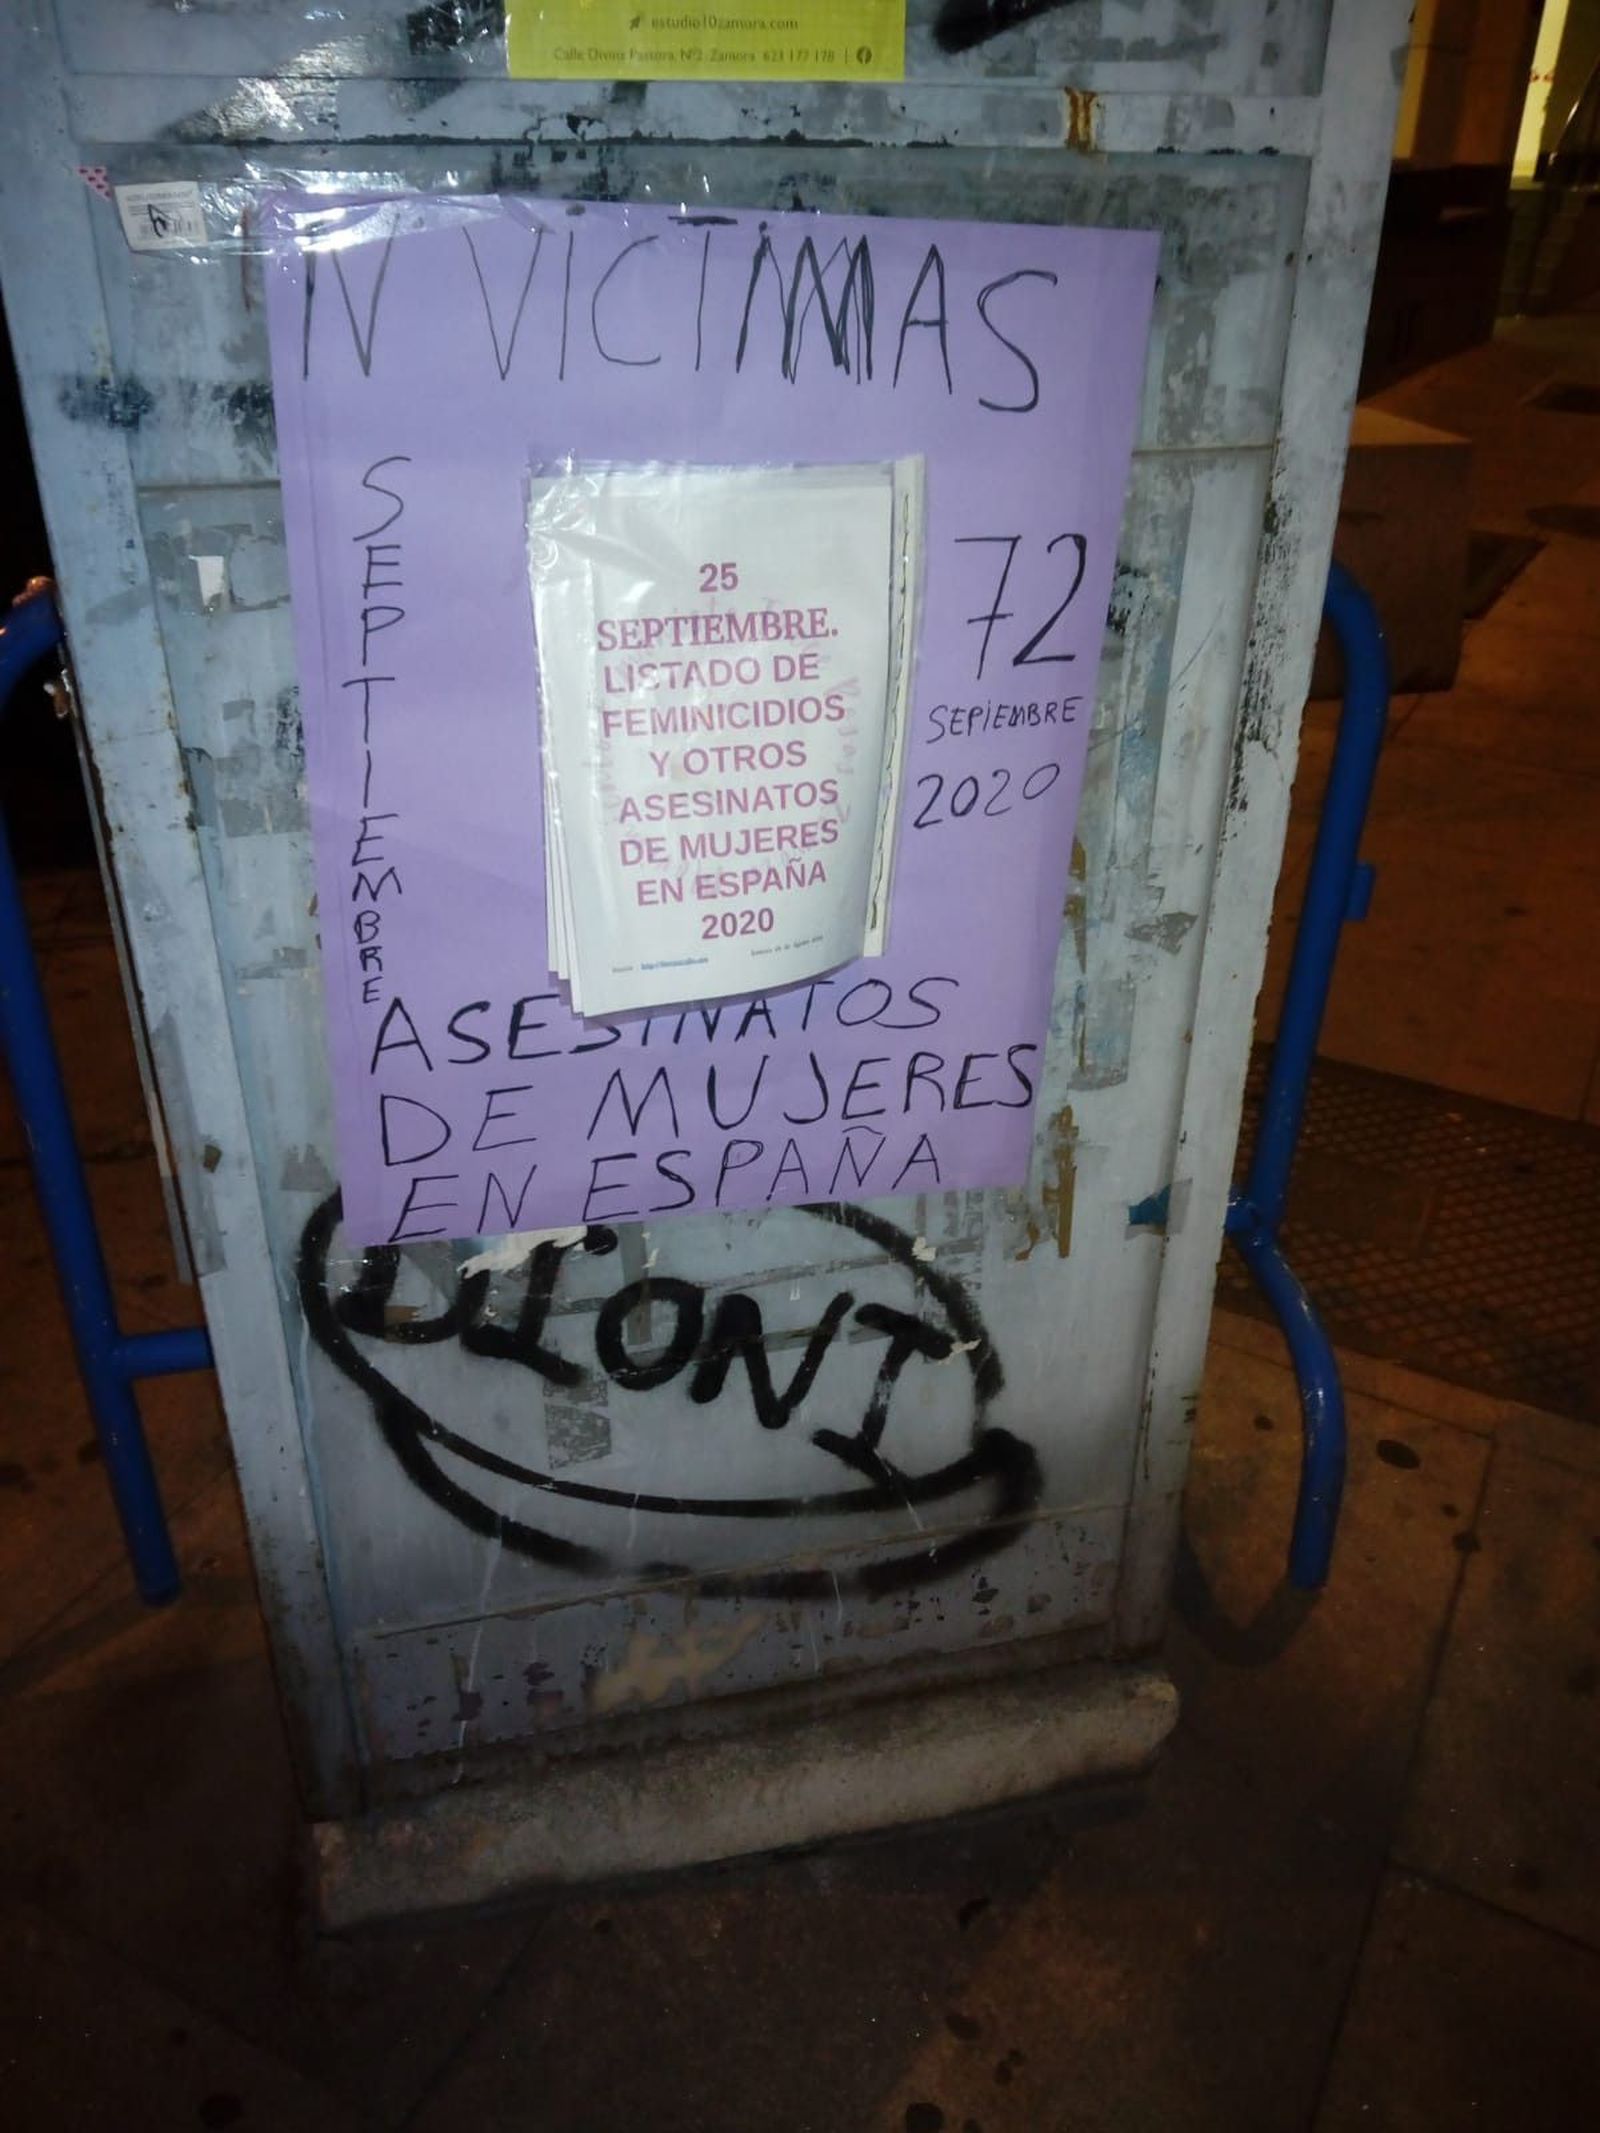 estudio10zamora.com
Calle Divina Pastora, Nº2. Zamora 623 177 178
N VICTIMAS
SEPTIEMBRE
25
SEPTIEMBRE.
LISTADO DE
FEMINICIDIOS
Y OTROS
ASESINATOS
DE MUJERES
EN ESPAÑA
2020
72
SEPIEMBRE
2020
ASESINATOS
DE MUJERES
EN ESPAÑA